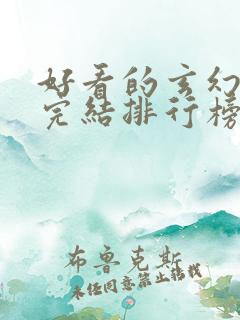 好看的玄幻
完结排行榜
布鲁克斯
未经同意禁止转载